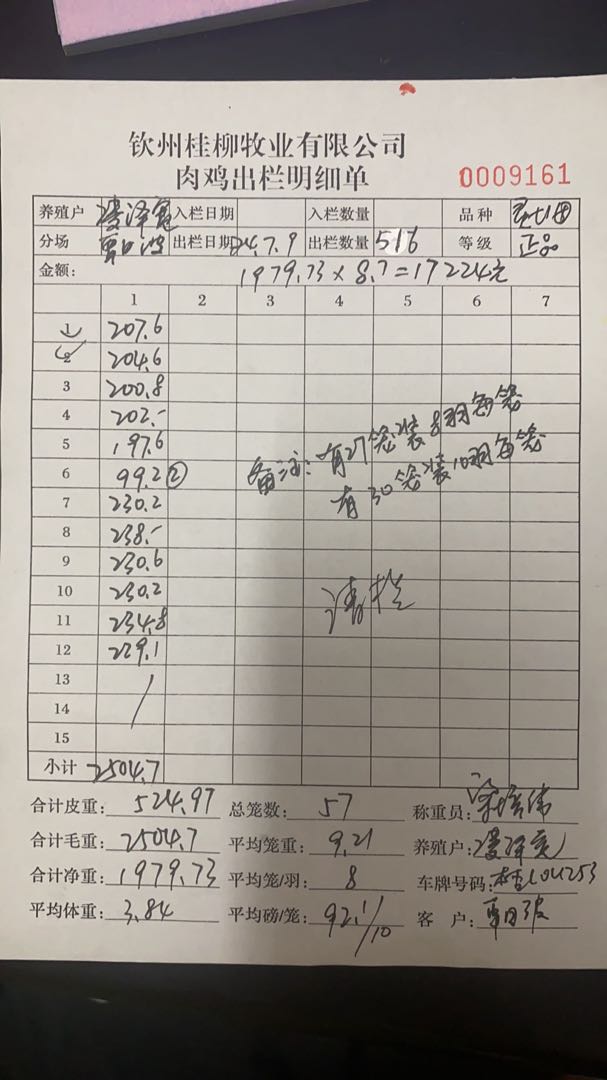 钦州桂柳牧业有限公司
肉鸡出栏明细单
0009161
养殖户 入栏日期 入栏数量 品种
分场 出栏日期 24.7.9 出栏数量 516 等级 正品
金额: 1979.73×8.7=17224元
1 2 3 4 5 6 7
1 207.6
2 204.6
3 200.8
4 202.-
5 197.6
6 99.2 ②
7 230.2
8 238.-
9 230.6
10 230.2
11 234.8
12 229.1
13
14
15
备注:有27笼装8羽每笼
有30笼装10羽每笼
清栏
小计 2504.7
合计皮重: 524.97 总笼数: 57 称重员:
合计毛重: 2504.7 平均笼重: 9.21 养殖户:
合计净重: 1979.73 平均笼/羽: 8 车牌号码:
平均体重: 3.84 平均磅/笼: 92.1/10 客 户: